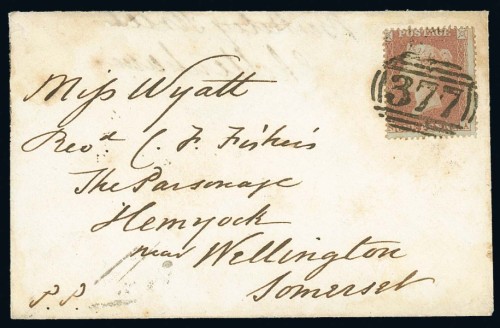 POSTAGE
377
Miss Wyatt
Revd C. F. Fisher's
The Parsonage
Hemyock
near Wellington
Somerset
P.P.